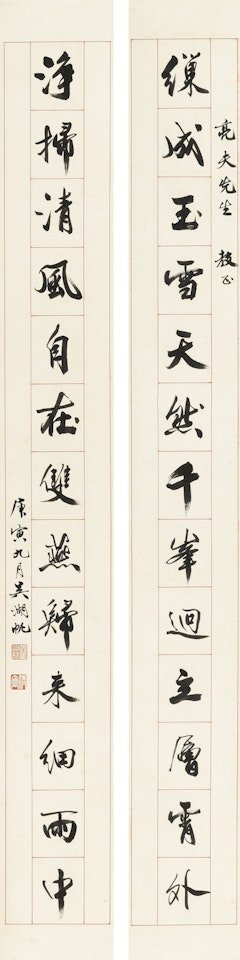 亮夫先生 教正
繅成玉雪天然千峯迥立層霄外
淨掃清風自在雙燕歸来細雨中
庚寅九月吳湖帆